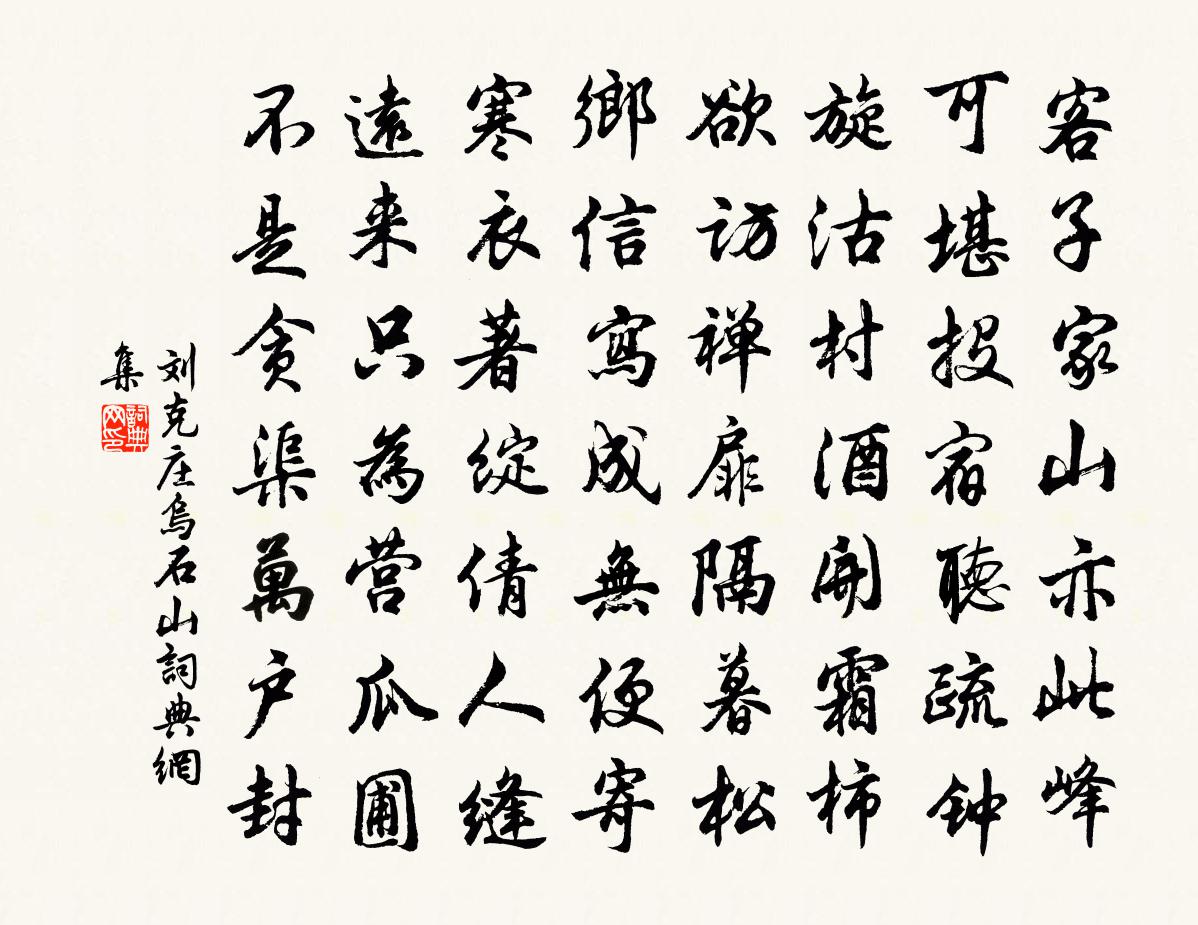 客子家山亦此峰
可堪投宿聽疏钟
旋沽村酒開霜柿
欲访禅扉隔暮松
鄉信寫成無便寄
寒衣著綻倩人縫
遠来只為营瓜圃
不是贪渠萬户封
刘克庄烏石山詞典網
集
詞典网印